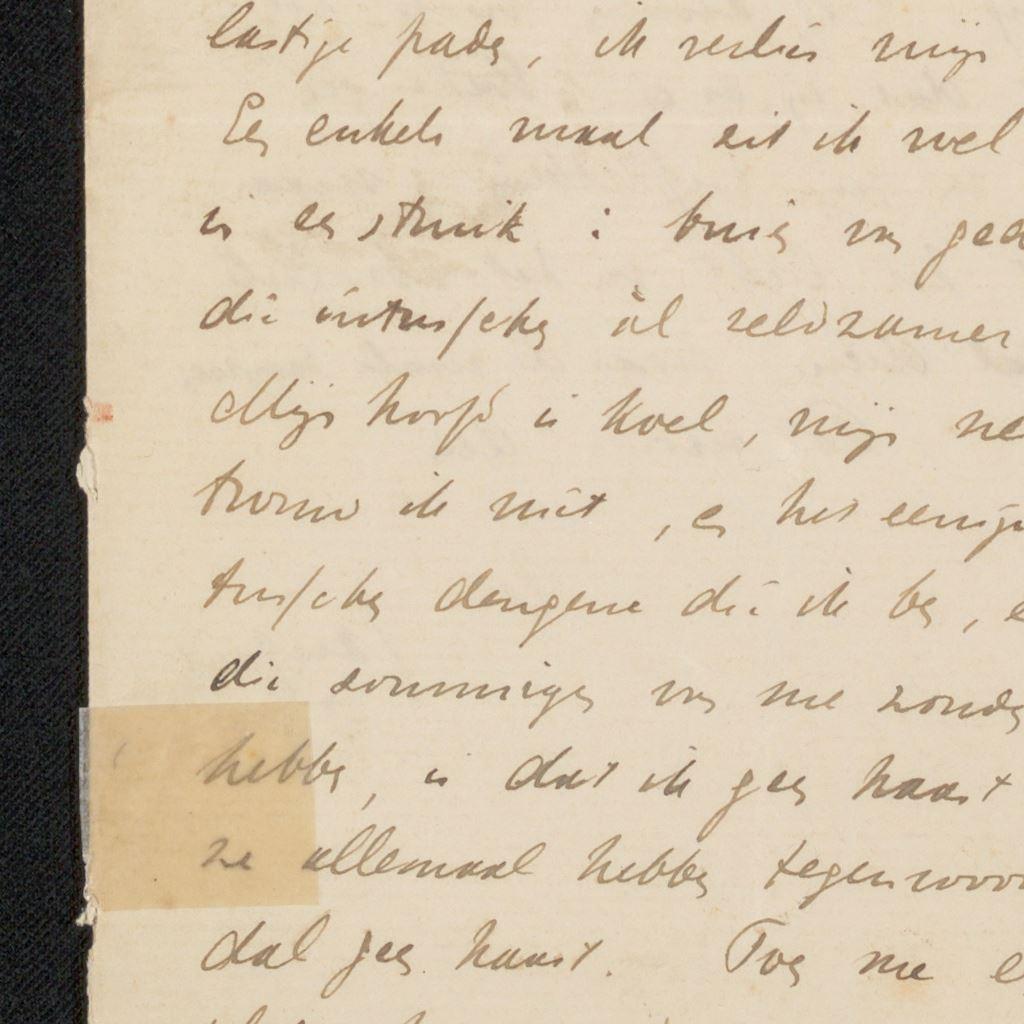 lastige paden, ik verlies mijn
Een enkele maal zit ik wel
is een struik : buien van ged
die intusschen ál zeldzamer
Mijn hoofd is koel, mijn
ik niet, en het eenig
tusschen dengene die ik ben, e
die sommigen van me zouden
hebben, is dat ik geen haast
ze allemaal hebben tegenwoor
dal geen haast. Toen me e